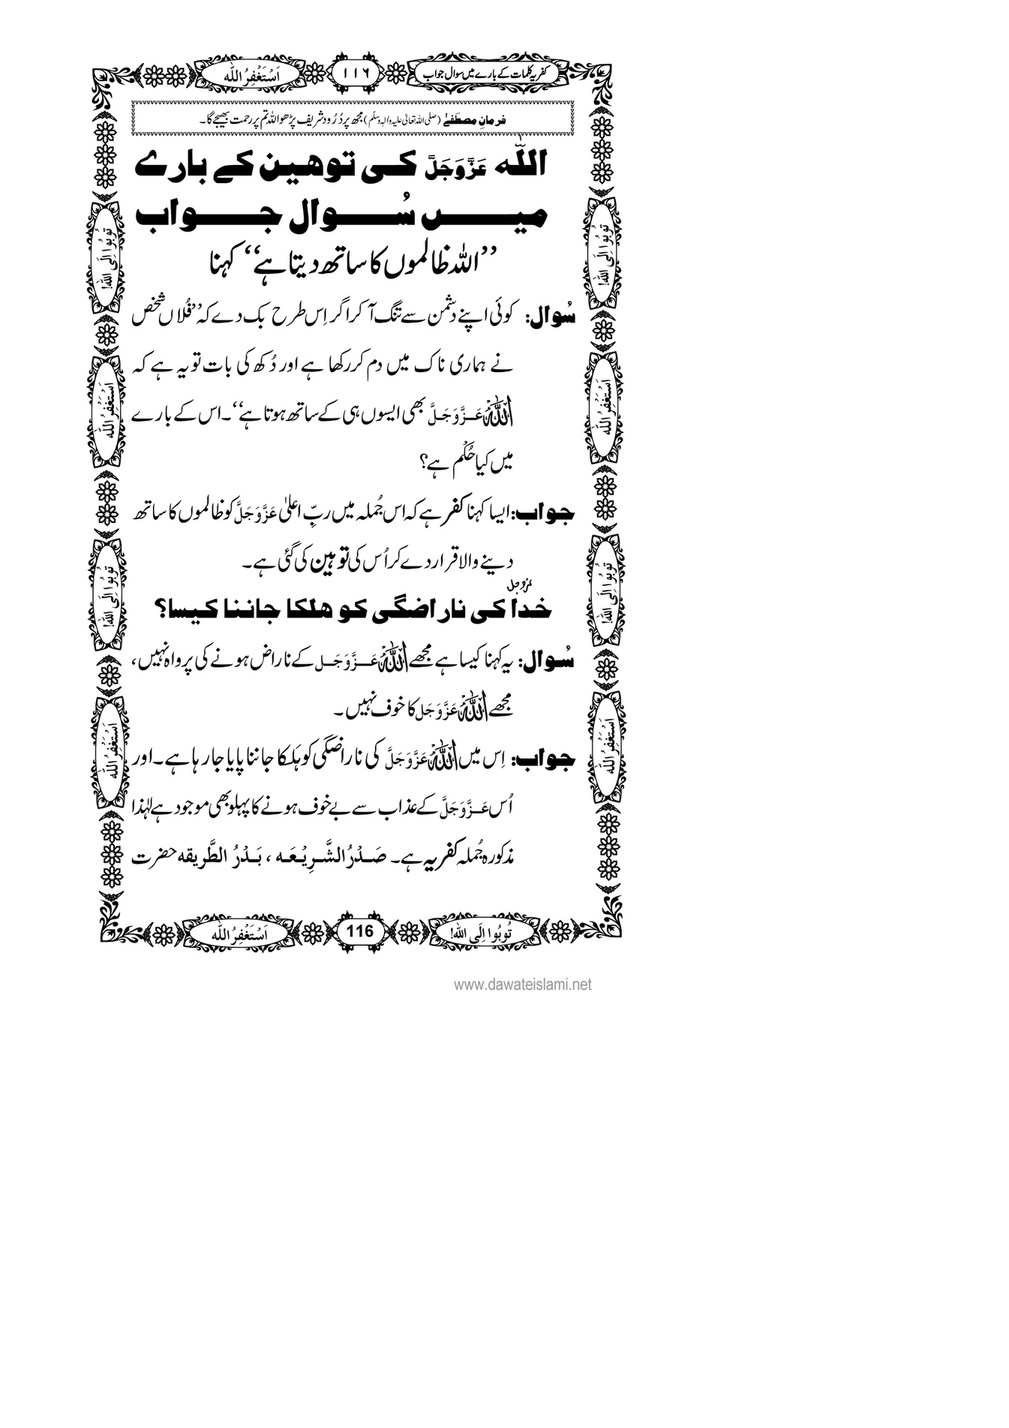 کفریہ کلمات کے بارے میں سوال جواب
١١٦
اَسْتَغْفِرُ اللّٰه
فرمانِ مصطَفےٰ (صلی اللہ تعالیٰ علیہ والہٖ وسلّم) مجھ پر دُرُود شریف پڑھو اللہ تم پر رحمت بھیجے گا۔
اللّٰہ عَزَّوَجَلَّ کی توھین کے بارے
میں سُوال جواب
’’اللہ ظالموں کا ساتھ دیتا ہے‘‘ کہنا
سُوال: کوئی اپنے دشمن سے تنگ آ کر اگر اِس طرح بک دے کہ ’’فُلاں شخص
نے ہماری ناک میں دم کر رکھا ہے اور دُکھ کی بات تو یہ ہے کہ
اللّٰہُ عَزَّوَجَلَّ بھی ایسوں ہی کے ساتھ ہوتا ہے‘‘۔ اس کے بارے
میں کیا حُکْم ہے؟
جواب: ایسا کہنا کفر ہے کہ اس جُملہ میں ربِّ اعلیٰ عَزَّوَجَلَّ کو ظالموں کا ساتھ
دینے والا قرار دے کر اُس کی توہین کی گئی ہے۔
خدا عزوجل کی ناراضگی کو ھلکا جاننا کیسا؟
سُوال: یہ کہنا کیسا ہے مجھے اللّٰہُ عَزَّوَجَل کے ناراض ہونے کی پرواہ نہیں،
مجھے اللّٰہُ عَزَّوَجَل کا خوف نہیں۔
جواب: اِس میں اللّٰہُ عَزَّوَجَلَّ کی ناراضگی کو ہَلکا جاننا پایا جا رہا ہے۔ اور
اُس عَزَّوَجَلَّ کے عذاب سے بے خوف ہونے کا پہلو بھی موجود ہے لہٰذا
مذکورہ جُملہ کفریہ ہے۔ صَدْرُ الشَّرِیْعَه ، بَدْرُ الطَّریقه حضرت
تُوبُوا اِلَی اللّٰه!
116
اَسْتَغْفِرُ اللّٰه
تُوبُوا اِلَی اللّٰه!
اَسْتَغْفِرُ اللّٰه
تُوبُوا اِلَی اللّٰه!
اَسْتَغْفِرُ اللّٰه
تُوبُوا اِلَی اللّٰه!
اَسْتَغْفِرُ اللّٰه
تُوبُوا اِلَی اللّٰه!
اَسْتَغْفِرُ اللّٰه
www.dawateislami.net